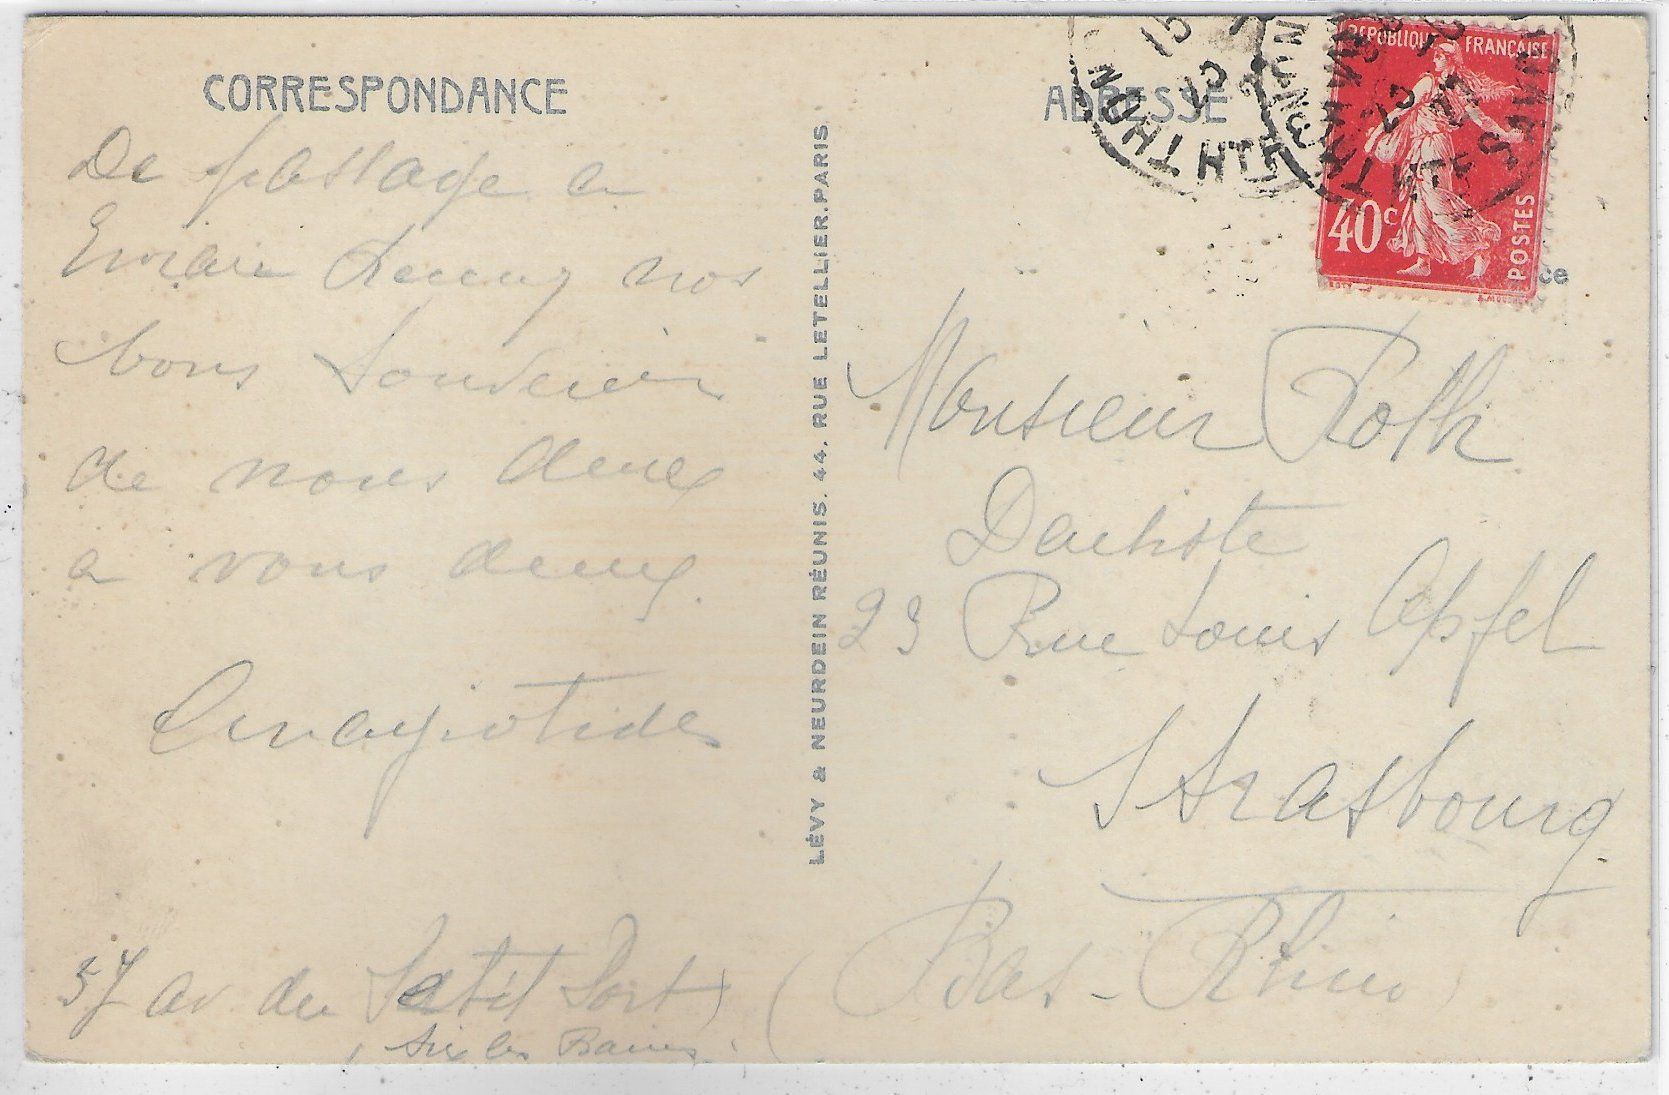 CORRESPONDANCE
De passage a
Evian recevez nos
bons Souvenirs
de nous deux
a vous deux.
57 av du Petit Port
Aix les Bains
LÉVY & NEURDEIN RÉUNIS. 44, RUE LETELLIER. PARIS
ADRESSE
REPUBLIQUE FRANÇAISE
40c
POSTES
THONON
Hte SAVOIE
ce
Monsieur Roth
Dentiste
23 Rue Louis Apffel
Strasbourg
(Bas-Rhin)